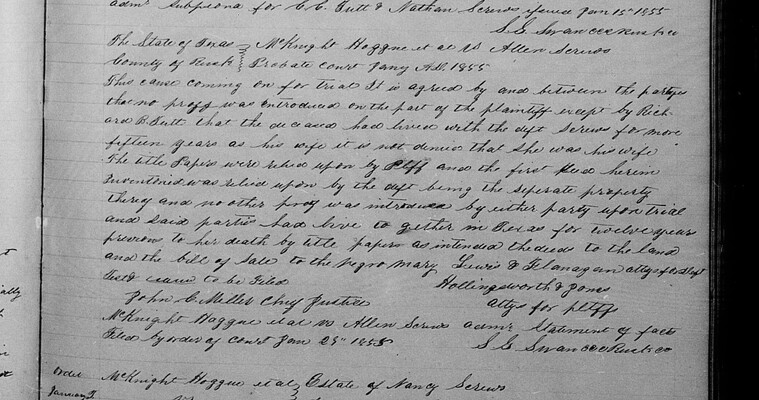 adm^r Subpoena for C.C. Tutt & Nathan Screws issued Jan 15th 1855
S.G. Swan ccc Rusk co
The State of Texas } McKnight Hoggue et al vs Allen Screws
County of Rusk } Probate court Jany A.D. 1855
This cause coming on for trial It is agreed by and between the partys
that no proff was introduced on the part of the plaintiff except by Rich
ard B. Tutt that the deceased had lived with the deft Screws for more
fifteen years as his wife it is not denied that she was his wife
The title Papers were relied upon by Pltff and the first deed herein
Inventoried was relied upon by the deft being the seperate property
therey and no other proof was introduced by either party upon trial
and said parties had live to gether in Texas for twelve years
previous to her death by title papers as intended the deeds to the land
and the bill of sale to the negro Mary Lewis & Flanagan attys for deft
came to be Filed Hollingsworth & Jones
John C. Miller Chief Justice Attys for pltffs
McKnight Hoggue et al vs Allen Screws adm^r Statement of facts
Filed by order of court Jan 25th 1855 S.G. Swan ccc Rusk co
Order McKnight Hoggue et al } Estate of Nancy Screws
January